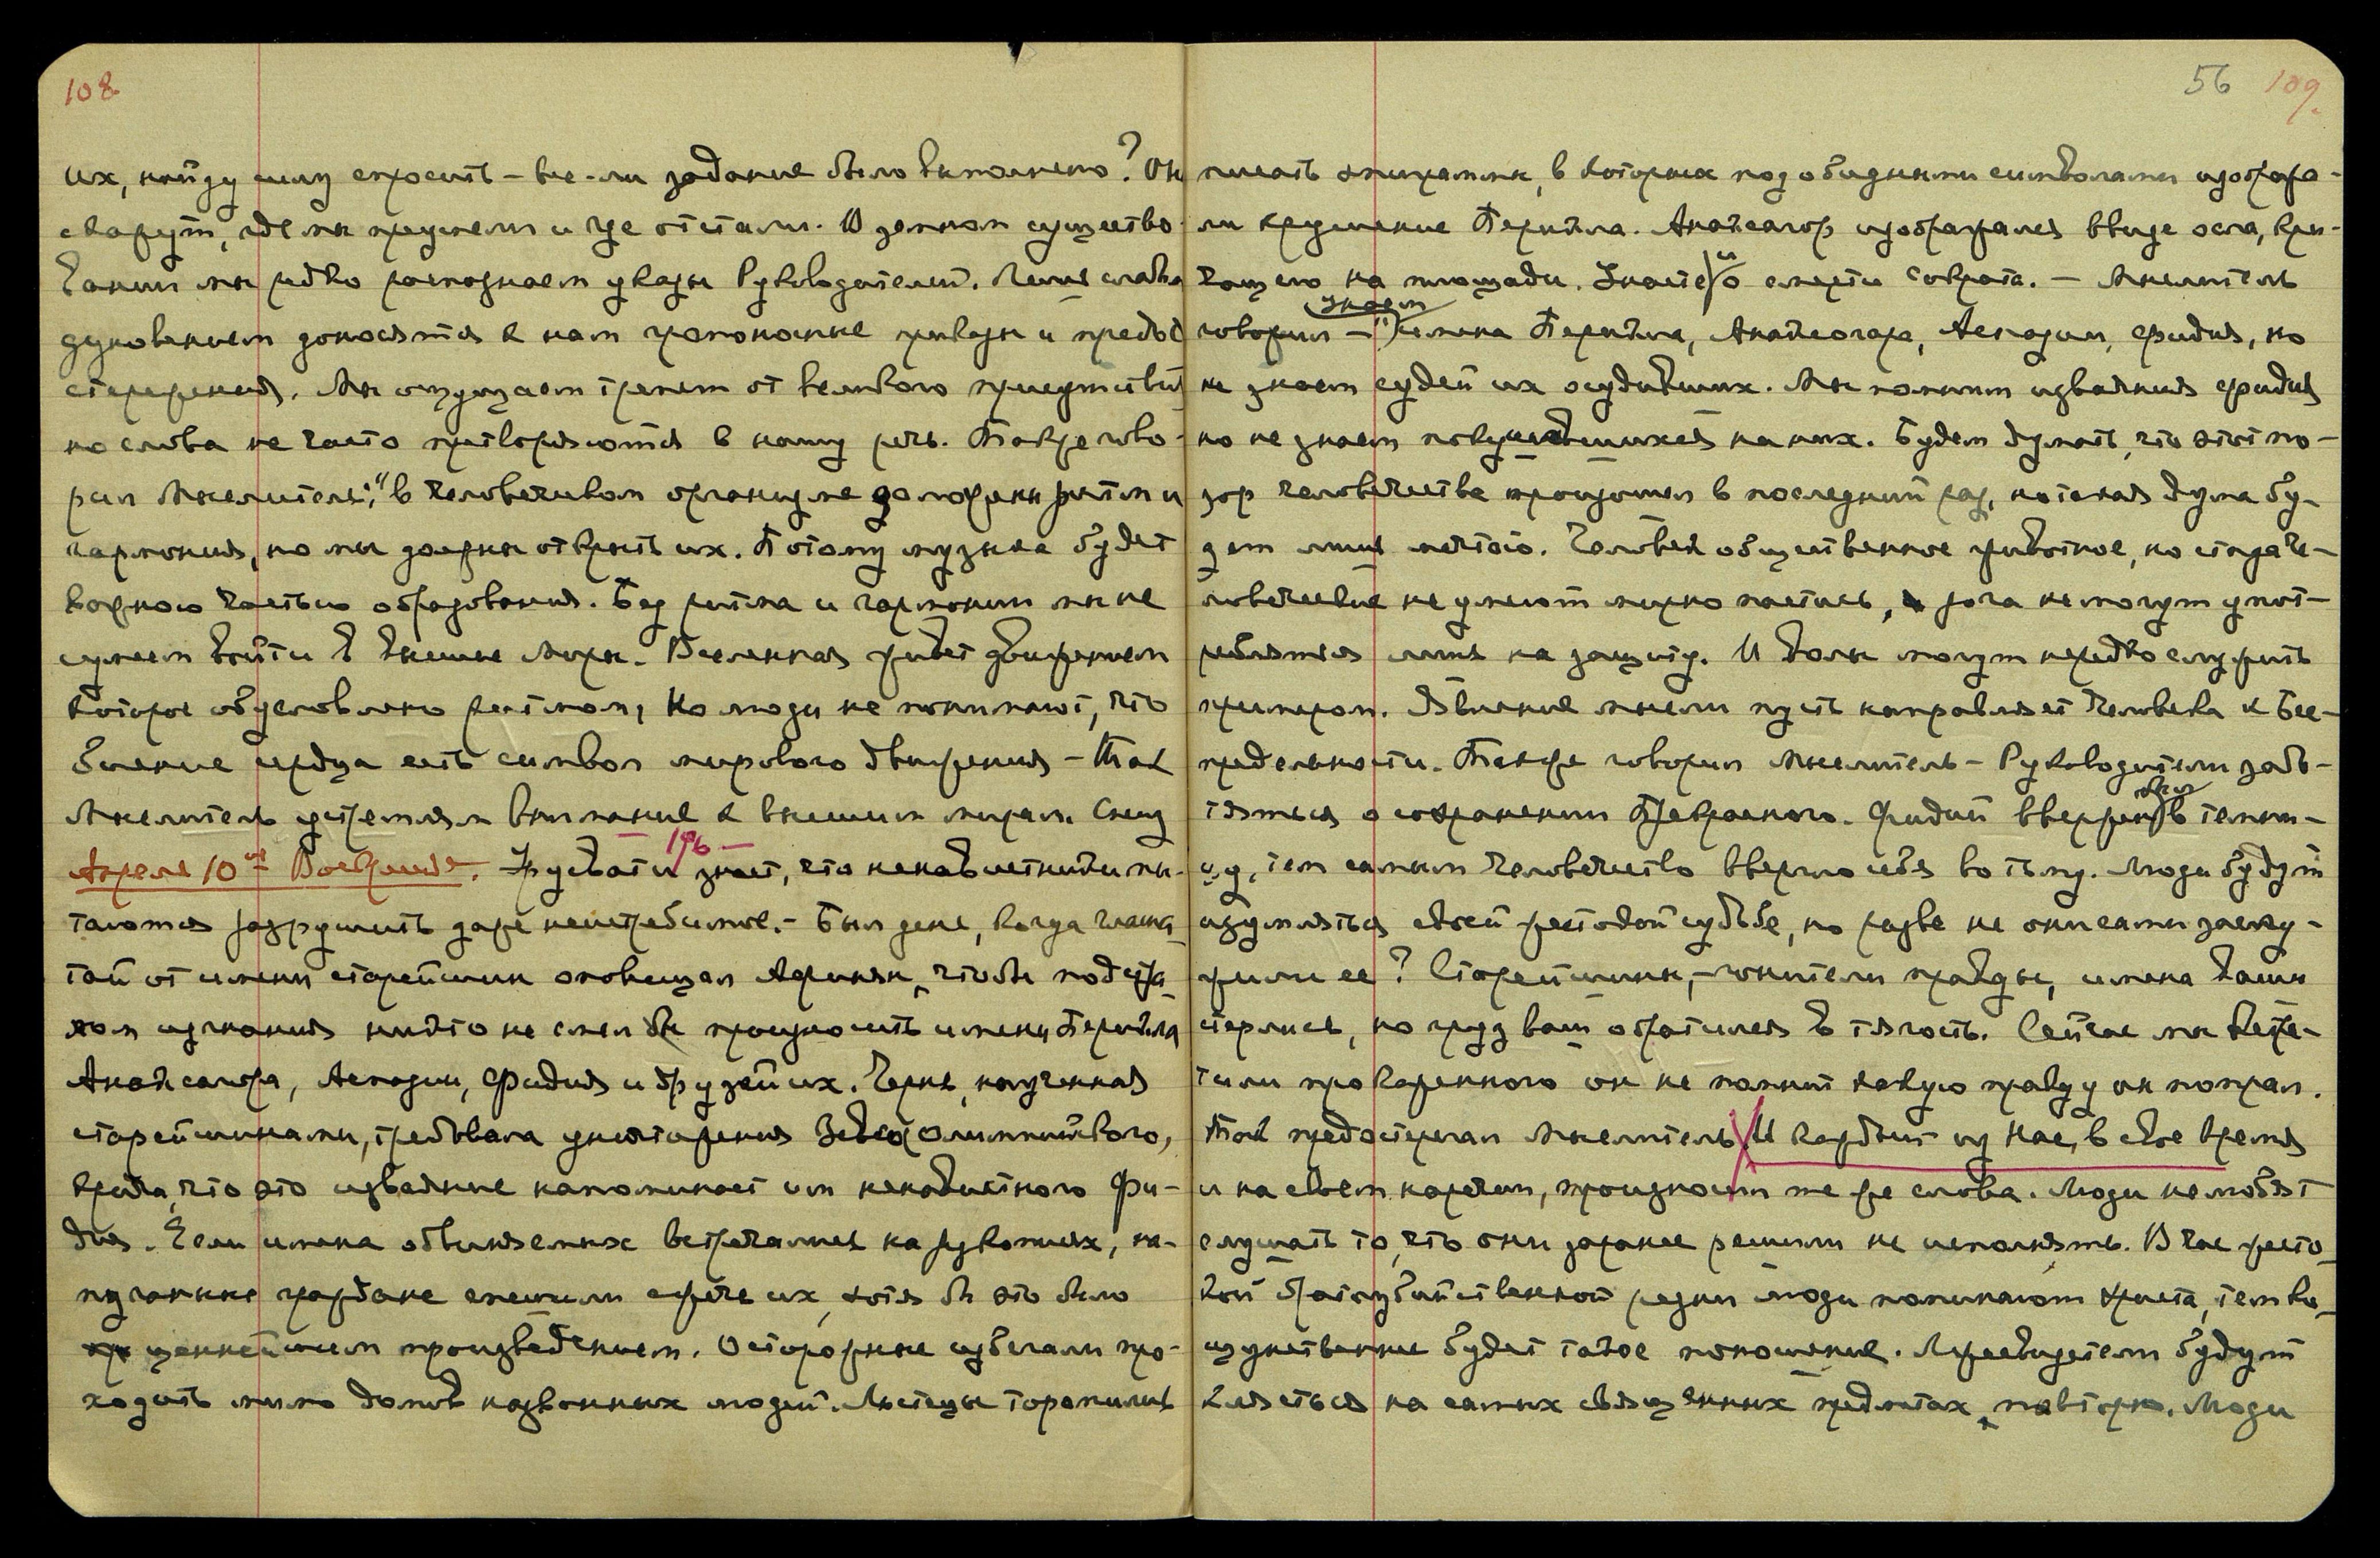 108
их, найду силу спросить – все-ли задание было выполнено? Они
скажут, где мы преуспели и где отстали. В земном существо-
вании мы редко распознаем указы Руководителей. Лишь слабым
дуновением доносятся к нам громоносные приказы и предо-
стережения. Мы ощущаем трепет от великого присутствия
но слова не часто претворяются в нашу речь. Также гово-
рил Мыслитель: "в человеческом организме заложены ритм и
гармония, но мы должны открыть их. Потому музыка будет
важною частью образования. Без ритма и гармонии мы не
сумеем войти в высшие миры. Вселенная живет движением
которое обусловлено ритмом, но люди не понимают, что
биение сердца есть символ мирового движения – Так
Мыслитель устремлял внимание к высшим мирам.
Апреля 10ое Воскресенье. 196 Урусвати знает, что ненавистники пы-
таются разрушить даже неистребимое. – Был день, когда глаша-
тай от имени старейшин оповещал Афинян, чтобы под стра-
хом изгнания никто не смел бы произносить имени Перикла
Анаксагора, Аспазии, Фидия и друзей их. Чернь, наученная
старейшинами, требовала уничтожения Зевса Олимпийского,
крича, что это изваяние напоминает им ненавистного Фи-
дия. Если имена обвиняемых встречались на рукописях, на-
пуганные граждане спешили сжечь их, хотя бы это было
ценнейшим произведением. Осторожные избегали про-
ходить мимо домов названных людей. Льстецы торопились
56 109
писать эпиграммы, в которых под обидными символами изобража-
ли крушение Перикла. Анаксагор изображался ввиде осла, кри-
чащего на площади. Знаете и о смерти Сократа. – Мыслитель
говорил – " знаем имена Перикла, Анаксагора, Аспазии, Фидия, но
не знаем судей их осудивших. Мы помним изваяния Фидия
но не знаем покушавшихся на них. Будем думать, что этот по-
зор человечества произошел в последний раз, но такая дума бу-
дет лишь мечтою. Человек общественное животное, но стада че-
ловеческие не умеют мирно пастись, рога не могут упот-
ребляться лишь на защиту. И волы могут нередко служить
примером. Биение мысли пусть направляет человека к Бес-
предельности. Также говорил Мыслитель – Руководители забо-
тятся о сохранении Прекрасного. Фидий ввержен был в темни-
цу, тем самым человечество ввергло себя во тьму. Люди будут
изумляться своей жестокой судьбе, но разве не они сами заслу-
жили ее? Старейшины, – гонители правды, имена ваши
стерлись, но груз ваш обратился в тягость. Сейчас мы встре-
тили прокаженного он не помнит какую правду он попрал.
Так предостерегал Мыслитель И каждый из Нас, в свое время
и на своем наречии, произносил те же слова. Люди не любят
слушать то, что они заранее решили не исполнять. В час жесто-
кой братоубийственной резни люди поминают Христа, тем ко-
щунственнее будет такое поношение. Лжесвидетели будут
клясться на самых священных предметах, повторю. Люди